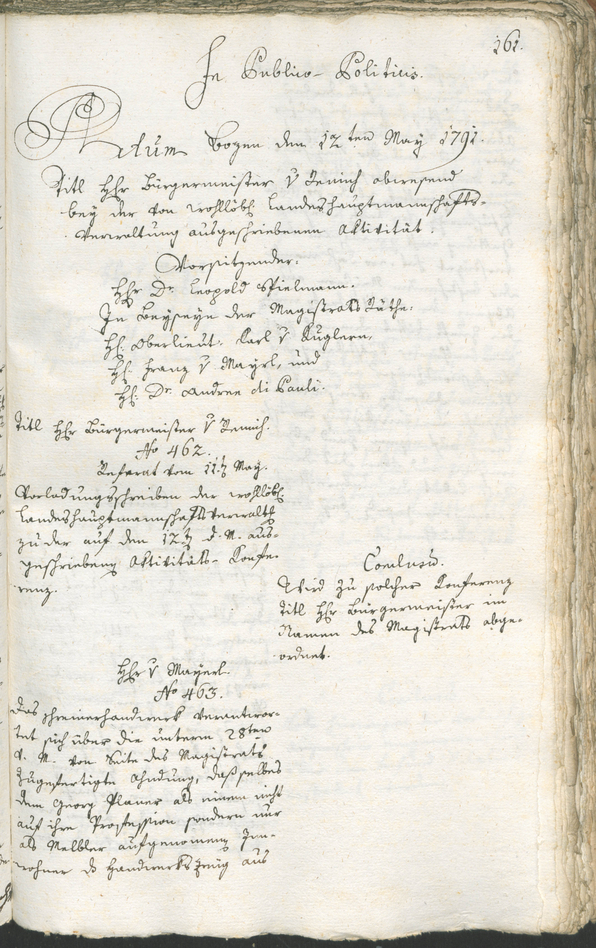 161.
In Publico-Politicis.
Actum Bozen den 12ten May 1791.
Titl Hhr Bürgermeister v Remich abwesend
bey der von wohllöbl. Landeshauptmannschafts-
Verwaltung ausgeschriebenen Aktivität.
Vorsitzender:
Hhr Dr. Leopold Spielmann.
In Beyseyn der Magistrats Räthe:
HH. Oberlieut. Karl v Kuglern,
HH. Franz v Mayrl, und
HH. Dr. Andree di Pauli.
Titl Hhr Bürgermeister v Remich.
No 462.
Referat vom 11t May.
Vorladungsschreiben der wohllöbl.
Landeshauptmannschaftsverwaltg
zu der auf den 12t d. M. aus-
geschriebenen Aktivitäts-Konfe-
renz.
Conclusu.
Wird zu solcher Konferenz
Titl Hhr Bürgermeister im
Namen des Magistrats abge-
ordnet.
Hhr v Mayrl.
No 463.
Das Schreinerhandwerk verantwor-
tet sich über die unterm 28ten
v. M. von Seite des Magistrats
zugefertigte Ahndung, daß selbes
dem Georg Planer als einem nicht
auf ihre Profession sondern nur
als Melbler aufgenomenen Inn-
wohner die Handwerkszeug aus